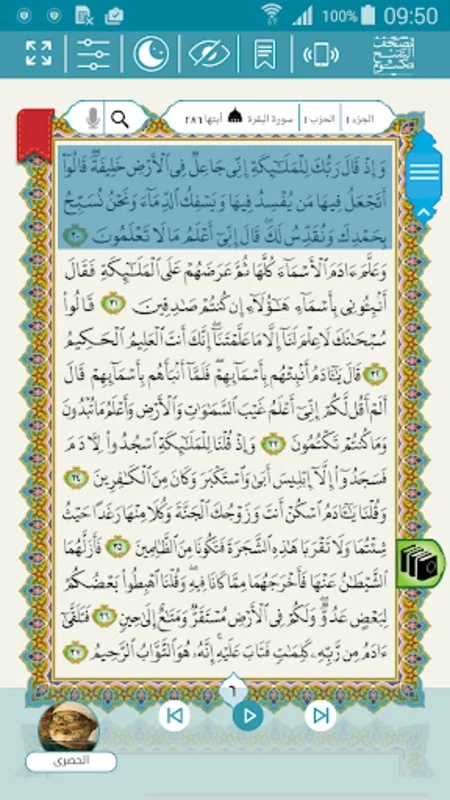 100% 09:50
الجزء ١ الحزب ١ سورة البقرة آيتها ٢٨٦
وَإِذْ قَالَ رَبُّكَ لِلْمَلَٰٓئِكَةِ إِنِّى جَاعِلٌ فِى ٱلْأَرْضِ خَلِيفَةً ۖ قَالُوٓا۟
أَتَجْعَلُ فِيهَا مَن يُفْسِدُ فِيهَا وَيَسْفِكُ ٱلدِّمَآءَ وَنَحْنُ نُسَبِّحُ
بِحَمْدِكَ وَنُقَدِّسُ لَكَ ۖ قَالَ إِنِّىٓ أَعْلَمُ مَا لَا تَعْلَمُونَ ٣٠
وَعَلَّمَ ءَادَمَ ٱلْأَسْمَآءَ كُلَّهَا ثُمَّ عَرَضَهُمْ عَلَى ٱلْمَلَٰٓئِكَةِ فَقَالَ
أَنۢبِـُٔونِى بِأَسْمَآءِ هَٰٓؤُلَآءِ إِن كُنتُمْ صَٰدِقِينَ ٣١ قَالُوا۟
سُبْحَٰنَكَ لَا عِلْمَ لَنَآ إِلَّا مَا عَلَّمْتَنَآ ۖ إِنَّكَ أَنتَ ٱلْعَلِيمُ ٱلْحَكِيمُ
٣٢ قَالَ يَٰٓـَٔادَمُ أَنۢبِئْهُم بِأَسْمَآئِهِمْ ۖ فَلَمَّآ أَنۢبَأَهُم بِأَسْمَآئِهِمْ قَالَ
أَلَمْ أَقُل لَّكُمْ إِنِّىٓ أَعْلَمُ غَيْبَ ٱلسَّمَٰوَٰتِ وَٱلْأَرْضِ وَأَعْلَمُ مَا تُبْدُونَ
وَمَا كُنتُمْ تَكْتُمُونَ ٣٣ وَإِذْ قُلْنَا لِلْمَلَٰٓئِكَةِ ٱسْجُدُوا۟ لِءَادَمَ
فَسَجَدُوٓا۟ إِلَّآ إِبْلِيسَ أَبَىٰ وَٱسْتَكْبَرَ وَكَانَ مِنَ ٱلْكَٰفِرِينَ ٣٤
وَقُلْنَا يَٰٓـَٔادَمُ ٱسْكُنْ أَنتَ وَزَوْجُكَ ٱلْجَنَّةَ وَكُلَا مِنْهَا رَغَدًا حَيْثُ
شِئْتُمَا وَلَا تَقْرَبَا هَٰذِهِ ٱلشَّجَرَةَ فَتَكُونَا مِنَ ٱلظَّٰلِمِينَ ٣٥ فَأَزَلَّهُمَا
ٱلشَّيْطَٰنُ عَنْهَا فَأَخْرَجَهُمَا مِمَّا كَانَا فِيهِ ۖ وَقُلْنَا ٱهْبِطُوا۟ بَعْضُكُمْ
لِبَعْضٍ عَدُوٌّ ۖ وَلَكُمْ فِى ٱلْأَرْضِ مُسْتَقَرٌّ وَمَتَٰعٌ إِلَىٰ حِينٍ ٣٦ فَتَلَقَّىٰٓ
ءَادَمُ مِن رَّبِّهِۦ كَلِمَٰتٍ فَتَابَ عَلَيْهِ ۚ إِنَّهُۥ هُوَ ٱلتَّوَّابُ ٱلرَّحِيمُ ٣٧
٦
الحصرى